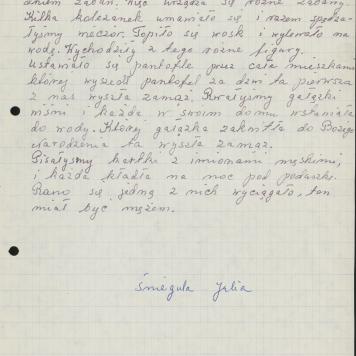 dniem zabaw. Więc urządza się różne zabawy.
Kilka koleżanek umawiało się i razem spędza-
łyśmy wieczór. Topiło się wosk i wylewało na
wodę. Wychodziły z tego różne figury.
Ustawiało się pantofle przez całe mieszkanie
której wyszedł pantofel za drzwi ta pierwsza
z nas wyszła zamąż. Rwałyśmy gałązki
wiśni i każda w swoim domu wstawiała
do wody. Której gałązka zakwitła do Bożego
Narodzenia ta wyszła zamąż.
Pisałyśmy kartki z imionami męskimi,
i każda kładła na noc pod poduszkę.
Rano się jedną z nich wyciągało, ten
miał być mężem.
Śmieguła Julia